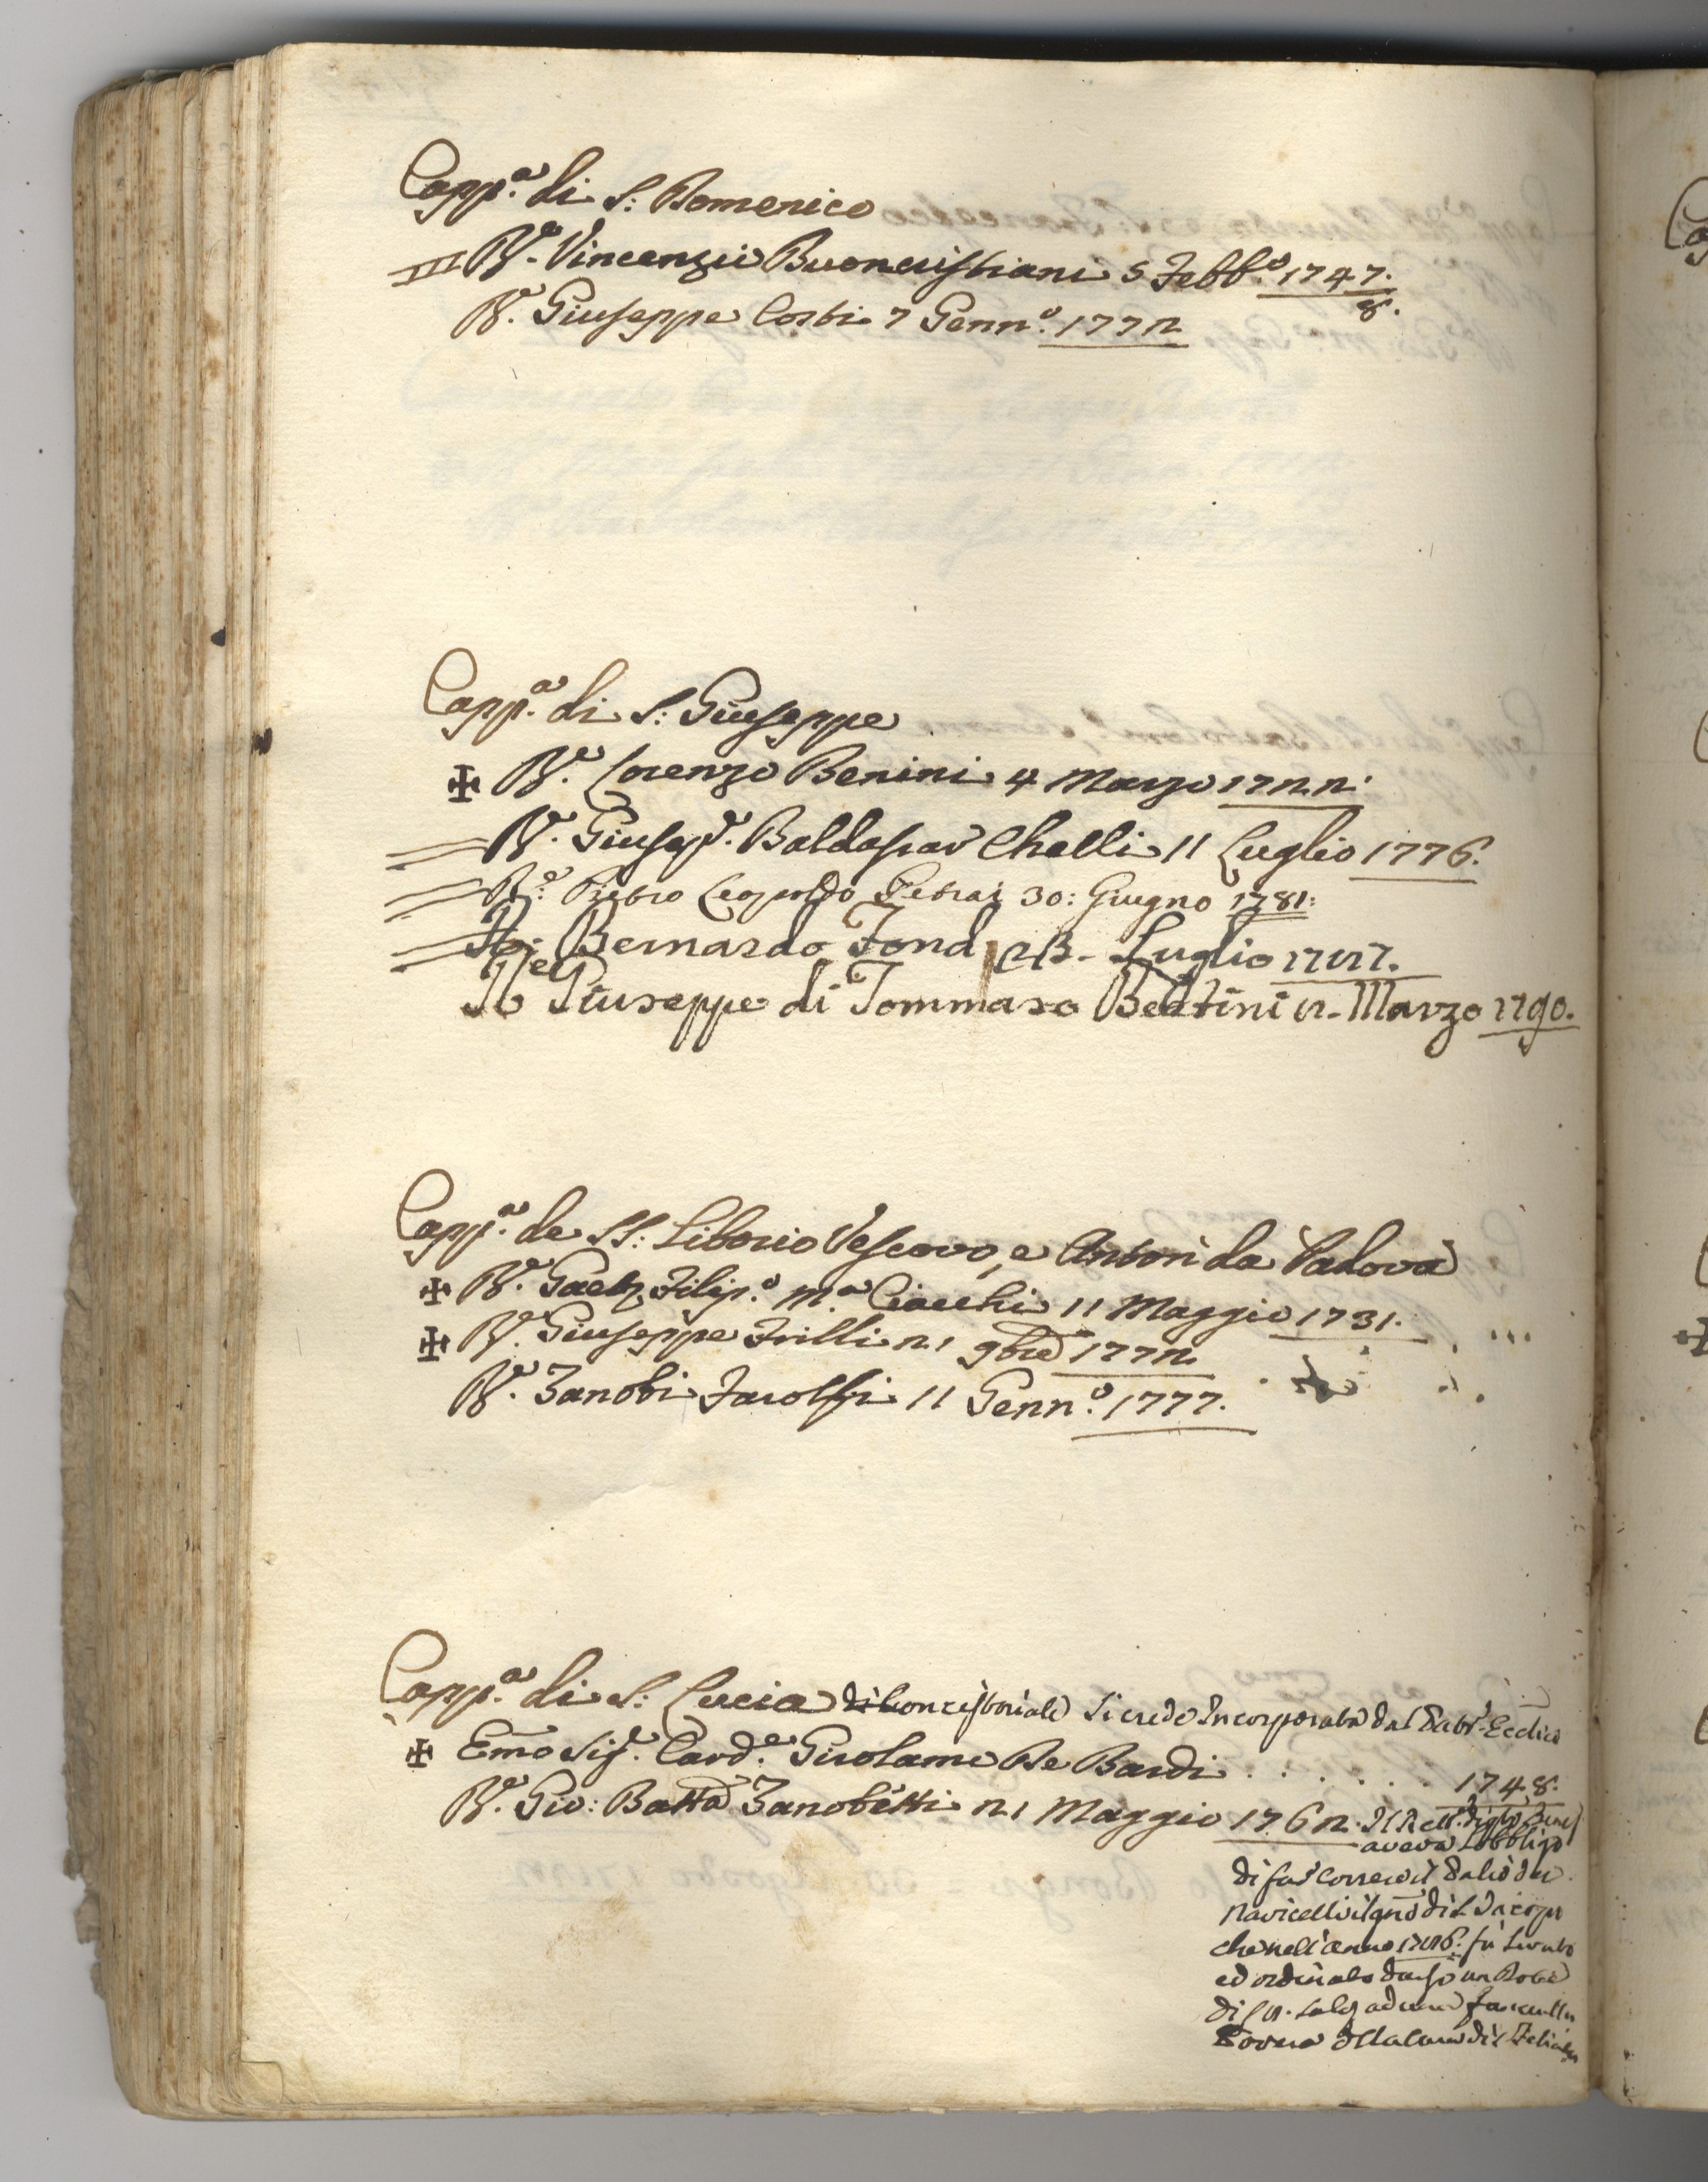 Capp.a di S: Domenico
R.e Vincenzio Buoncristiani 5 Febb.o 1747.
8.
R.e Giuseppe Corbi 7 Genn.o 1772
Capp.a di S: Giuseppe
R.e Lorenzo Benini 4 Marzo 1722.
R.e Giusep.e Baldassar Chelli 11 Luglio 1776.
R.e Pietro Leopoldo Petrai 30: Giugno 1781:
R.e Bernardo Fondi Luglio 1787.
R.e Giuseppe di Tommaso Bettini 12. Marzo 1790.
Capp.a de SS: Liborio Vescovo, e Anton da Padova
R.e Gaet. Filip.o M.a Ciacchi 11 Maggio 1731.
R.e Giuseppe Frilli 21 9bre 1772.
R.e Zanobi Farolfi 11 Genn.o 1777.
Capp.a di S: Lucia Concistoriale si crede Incorporata dal
Emo Sig.e Card.e Girolamo De Bardi . . . . . . 1748.
R.e Gio: Batta Zanobetti 21 Maggio 1762. Il Rett.e
aveva l'obbligo
di far correre il Palio dei
Navicelli il gno di S. Jacopo
che nell'anno 1786. fu levato
ed ordinato darsi un Dote
di ad una fanciulla
Povera della Cura di S. Felicita